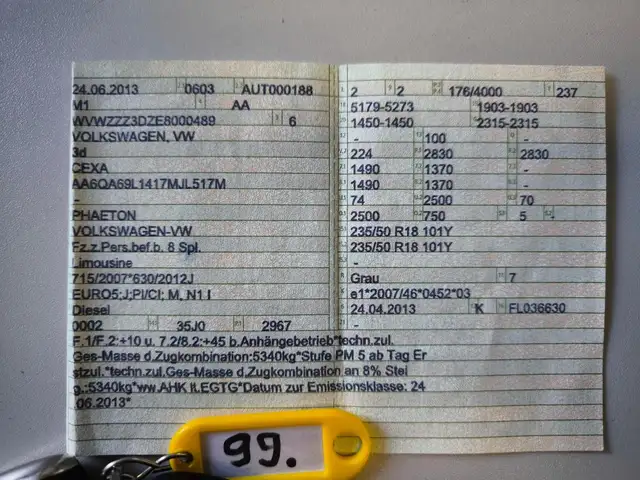 24.06.2013 0603 AUT000188
M1 AA
WVWZZZ3DZE8000489 6
VOLKSWAGEN, VW
3d
CEXA
AA6QA69L1417MJL517M
-
PHAETON
VOLKSWAGEN-VW
Fz.z.Pers.bef.b. 8 Spl.
Limousine
715/2007*630/2012J
EURO5;J;PI/CI; M, N1 I
Diesel
0002 35J0 2967
F.1/F.2:+10 u. 7.2/8.2:+45 b.Anhängebetrieb*techn.zul.
Ges-Masse d.Zugkombination:5340kg*Stufe PM 5 ab Tag Er
stzul.*techn.zul.Ges-Masse d.Zugkombination an 8% Stei
g.:5340kg*ww.AHK lt.EGTG*Datum zur Emissionsklasse: 24
.06.2013*
2 2 176/4000 237
5179-5273 1903-1903
1450-1450 2315-2315
- 100 -
224 2830 2830
1490 1370 -
1490 1370 -
74 2500 70
2500 750 5 -
235/50 R18 101Y
235/50 R18 101Y
-
Grau 7
e1*2007/46*0452*03
24.04.2013 K FL036630
-
99.